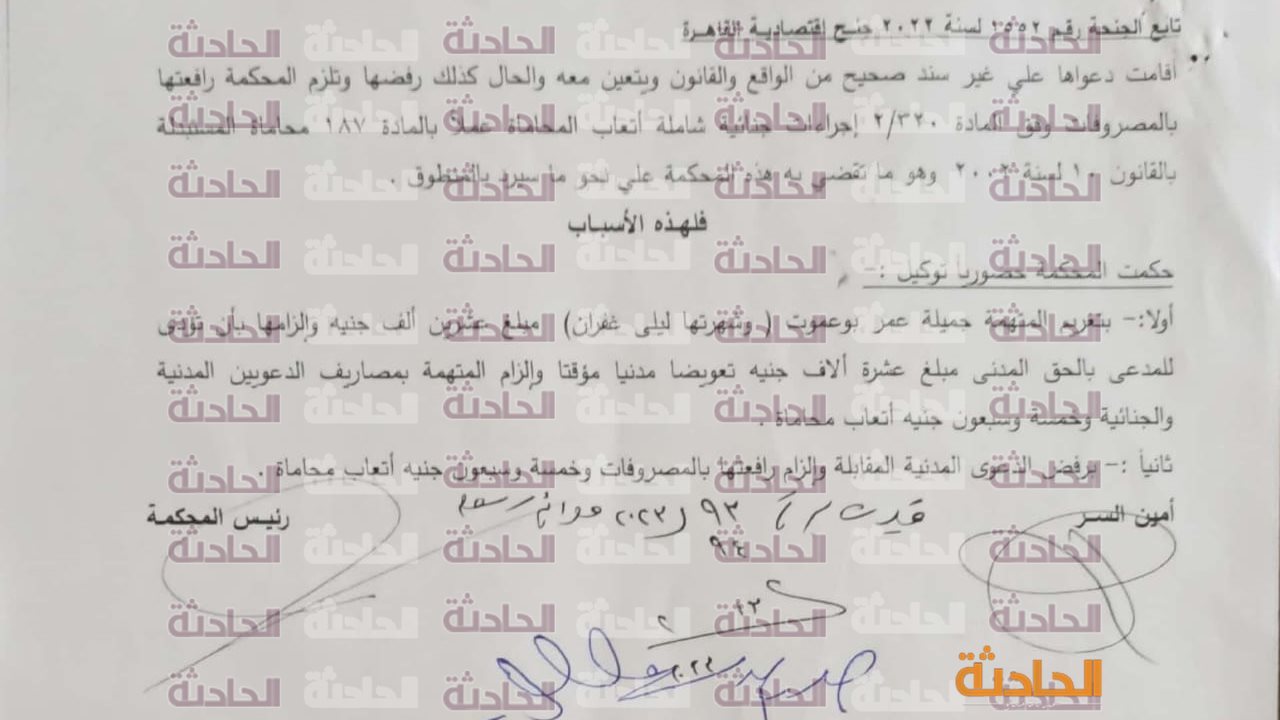 تابع الجنحة رقم ١٥٥٢ لسنة ٢٠٢٢ جنح إقتصادية القاهرة
أقامت دعواها علي غير سند صحيح من الواقع والقانون ويتعين معه والحال كذلك رفضها وتلزم المحكمة رافعتها
بالمصروفات وفق المادة ٢/٣٢٠ إجراءات جنائية شاملة أتعاب المحاماة عملاً بالمادة ١٨٧ محاماة المستبدلة
بالقانون ١٠ لسنة ٢٠٠٢ وهو ما تقضي به هذه المحكمة علي نحو ما سيرد بالمنطوق .
فلهذه الأسباب
حكمت المحكمة حضوريا توكيل :-
أولا:- بتغريم المتهمة جميلة عمر بوعموت ( وشهرتها ليلى غفران) مبلغ عشرين ألف جنيه والزامها بأن تؤدى
للمدعى بالحق المدنى مبلغ عشرة ألاف جنيه تعويضا مدنيا مؤقتا وإلزام المتهمة بمصاريف الدعويين المدنية
والجنائية وخمسة وسبعون جنيه أتعاب محاماة .
ثانياً :- برفض الدعوى المدنية المقابلة وإلزام رافعتها بالمصروفات وخمسة وسبعون جنيه أتعاب محاماة .
أمين السر
رئيس المحكمة
٩٣
٩٤
الحادثة